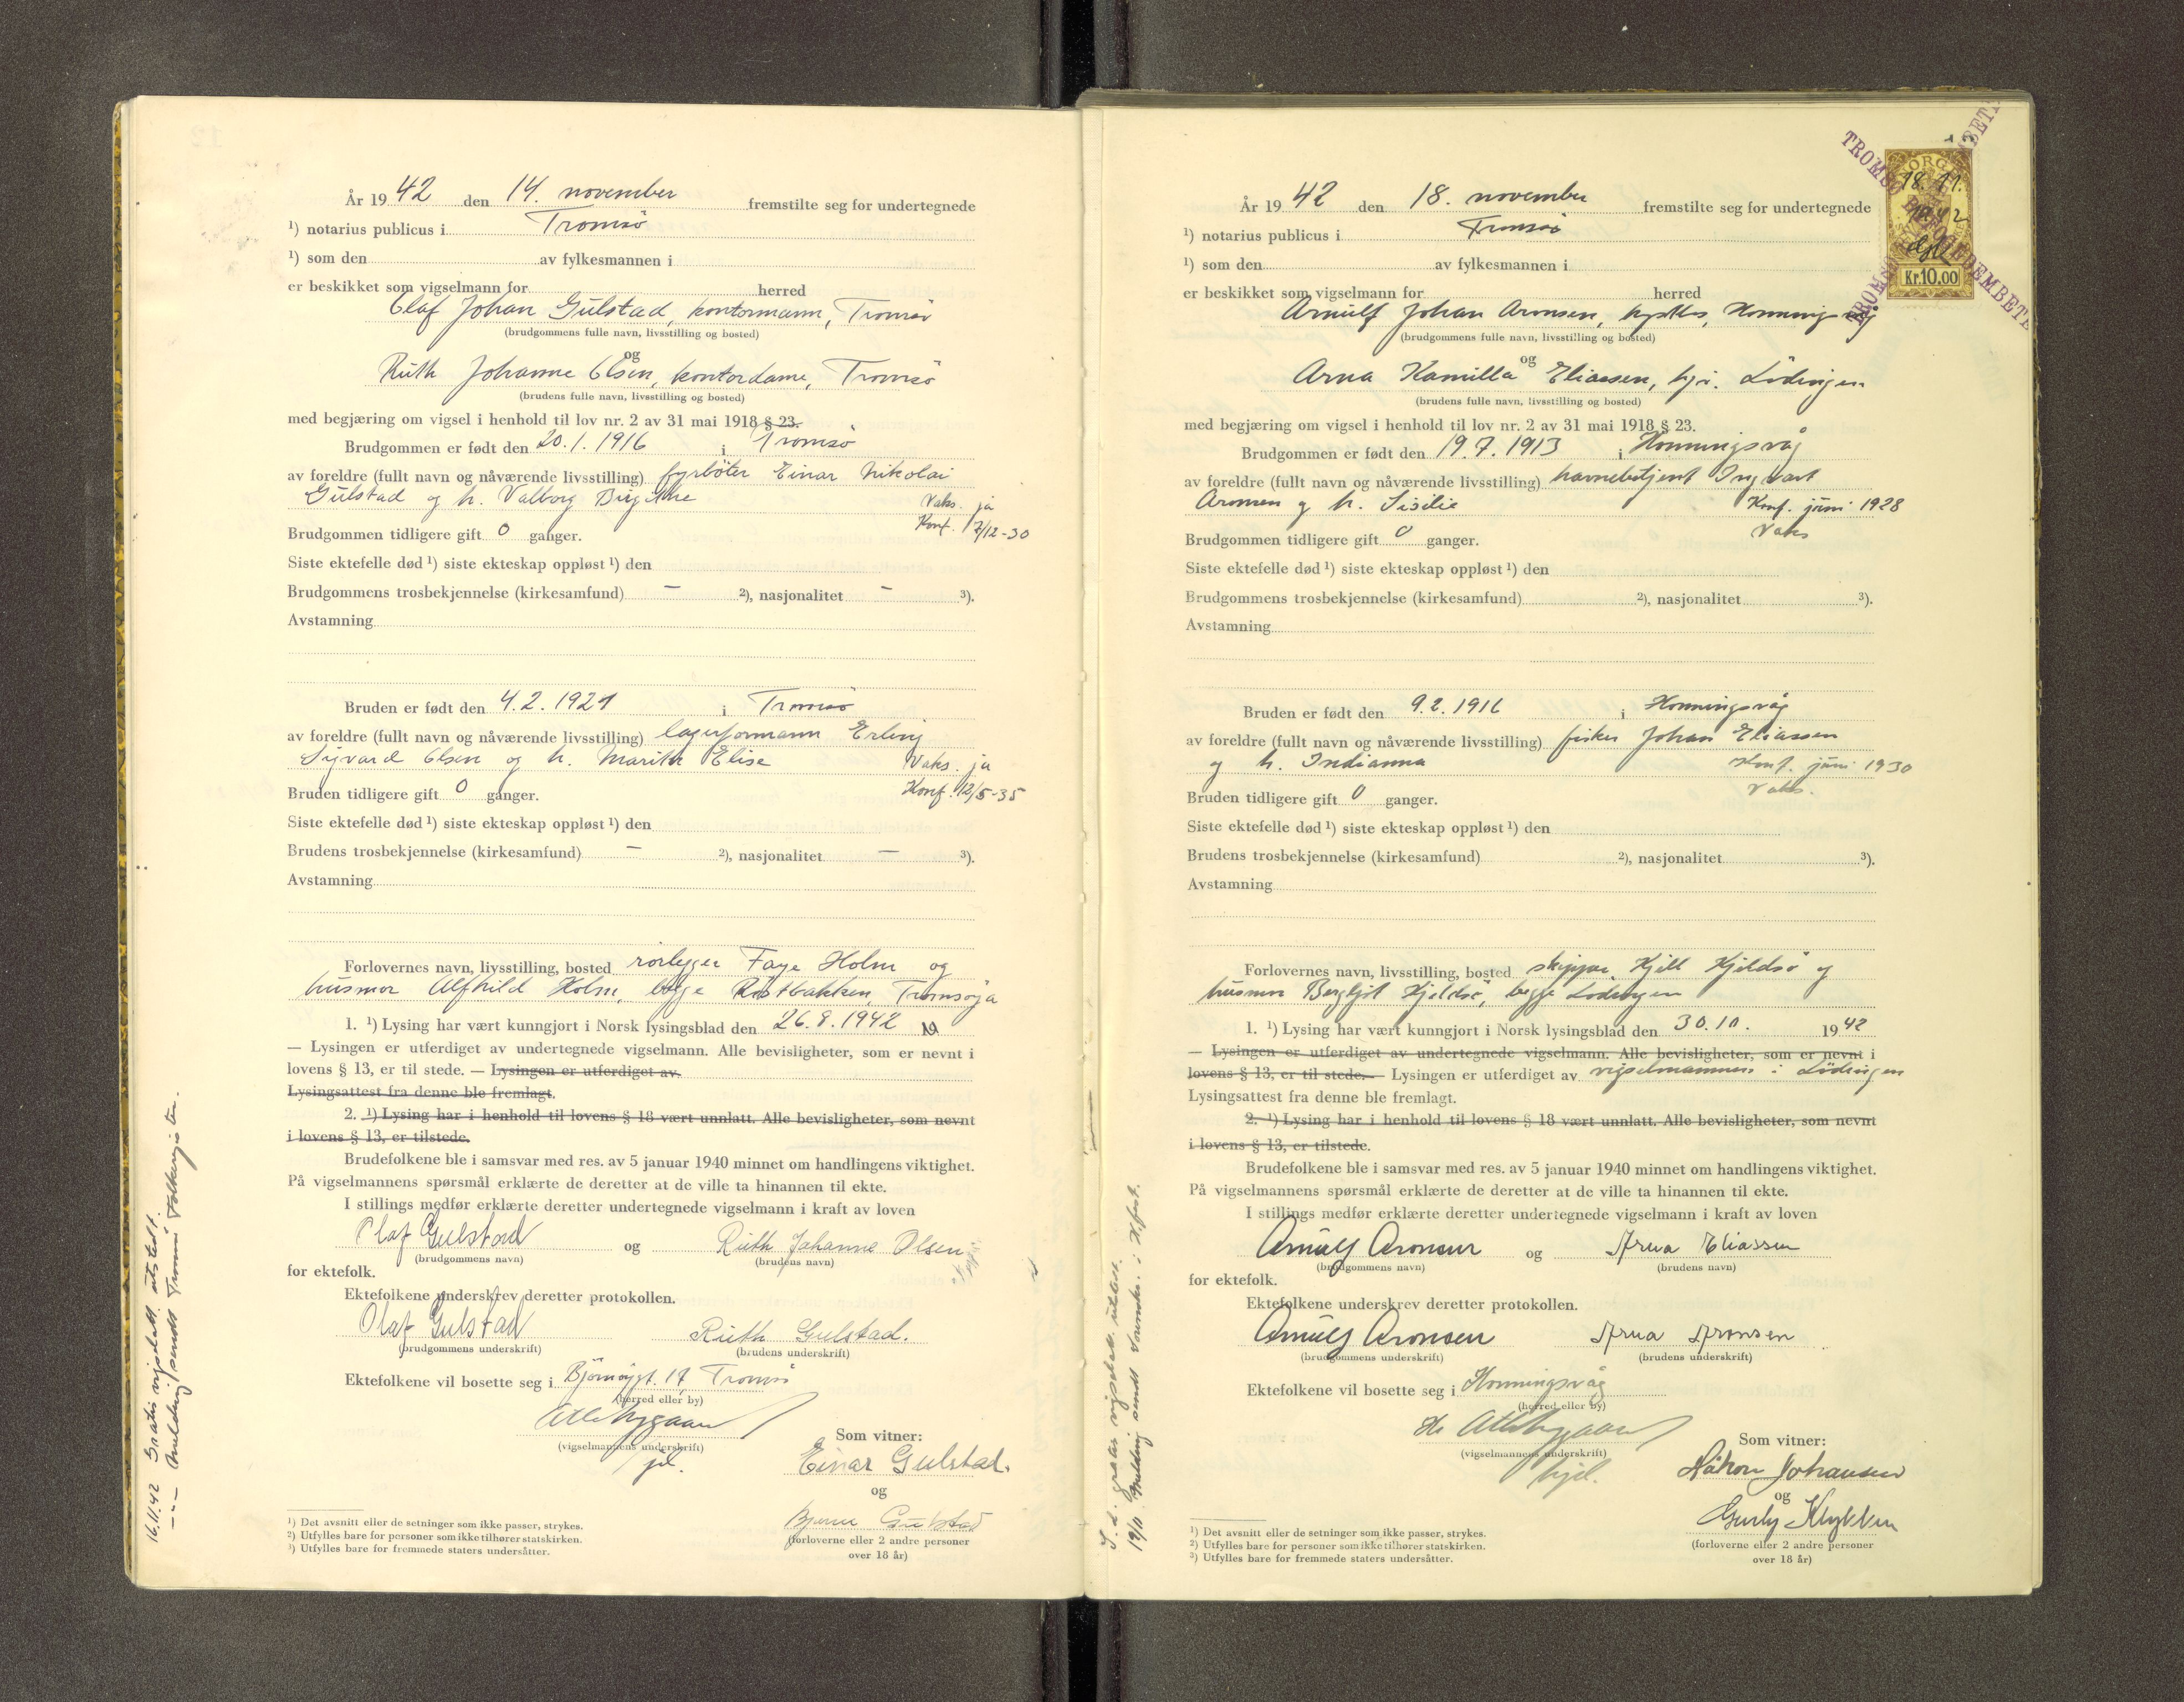 År 1942 den 14. november fremstilte seg for undertegnede
¹) notarius publicus i Tromsö
¹) som den av fylkesmannen i
er beskikket som vigselmann for herred
Olaf Johan Gulstad, kontormann, Tromsö
(brudgommens fulle navn, livsstilling og bosted)
og
Ruth Johanne Olsen, kontordame, Tromsö
(brudens fulle navn, livsstilling og bosted)
med begjæring om vigsel i henhold til lov nr. 2 av 31 mai 1918 § 23.
Brudgommen er født den 20.1.1916 i Tromsö
av foreldre (fullt navn og nåværende livsstilling) fyrböter Einar Nikolai
Gulstad og h. Valborg Birgithe Vaks. ja
Konf. 7/12-30
Brudgommen tidligere gift 0 ganger.
Siste ektefelle død ¹) siste ekteskap oppløst ¹) den
Brudgommens trosbekjennelse (kirkesamfund) — ²), nasjonalitet — ³).
Avstamning
Bruden er født den 4.2.1921 i Tromsö
av foreldre (fullt navn og nåværende livsstilling) lagerformann Erling
Sigvard Olsen og h. Marith Elise Vaks. ja
Bruden tidligere gift 0 ganger. Konf. 12/5-35
Siste ektefelle død ¹) siste ekteskap oppløst ¹) den
Brudens trosbekjennelse (kirkesamfund) — ²), nasjonalitet — ³).
Avstamning
Forlovernes navn, livsstilling, bosted rørlegger Faye Holm og
husmor Alfhild Holm, begge Tromsöya
1. ¹) Lysing har vært kunngjort i Norsk lysingsblad den 26.9.1942 19
— Lysingen er utferdiget av undertegnede vigselmann. Alle bevisligheter, som er nevnt i
lovens § 13, er til stede. — Lysingen er utferdiget av
Lysingsattest fra denne ble fremlagt.
2. ¹) Lysing har i henhold til lovens § 18 vært unnlatt. Alle bevisligheter, som nevnt
i lovens § 13, er tilstede.
Brudefolkene ble i samsvar med res. av 5 januar 1940 minnet om handlingens viktighet.
På vigselmannens spørsmål erklærte de deretter at de ville ta hinannen til ekte.
I stillings medfør erklærte deretter undertegnede vigselmann i kraft av loven
Olaf Gulstad og Ruth Johanne Olsen
(brudgommens navn) (brudens navn)
for ektefolk.
Ektefolkene underskrev deretter protokollen.
Olaf Gulstad Ruth Gulstad.
(brudgommens underskrift) (brudens underskrift)
Ektefolkene vil bosette seg i Björnöygt. 17, Tromsö
(herred eller by)
(vigselmannens underskrift)
Som vitner:
Einar Gulstad.
og
Bjarne Gulstad
(forloverne eller 2 andre personer
over 18 år)
¹) Det avsnitt eller de setninger som ikke passer, strykes.
²) Utfylles bare for personer som ikke tilhører statskirken.
³) Utfylles bare for fremmede staters undersåtter.
16.11.42 Gratis vigselatt. utstedt.
—"— Melding sendt Tromsö Folkeregister.
TROMSØ
18.11.
1942
Kr.10.00
År 1942 den 18. november fremstilte seg for undertegnede
¹) notarius publicus i Tromsö
¹) som den av fylkesmannen i
er beskikket som vigselmann for herred
Arnulf Johan Aronsen, Honningsvåg
(brudgommens fulle navn, livsstilling og bosted)
og
Arna Kamilla Eliassen, hjv. Lödingen
(brudens fulle navn, livsstilling og bosted)
med begjæring om vigsel i henhold til lov nr. 2 av 31 mai 1918 § 23.
Brudgommen er født den 19.7.1913 i Honningsvåg
av foreldre (fullt navn og nåværende livsstilling) havnebetjent Ingvart
Aronsen og h. Sisilie Konf. juni 1928
Brudgommen tidligere gift 0 ganger. Vaks
Siste ektefelle død ¹) siste ekteskap oppløst ¹) den
Brudgommens trosbekjennelse (kirkesamfund) ²), nasjonalitet ³).
Avstamning
Bruden er født den 9.2.1916 i Honningsvåg
av foreldre (fullt navn og nåværende livsstilling) fisker Johan Eliassen
og h. Indianna Konf. juni 1930
Bruden tidligere gift 0 ganger. Vaks.
Siste ektefelle død ¹) siste ekteskap oppløst ¹) den
Brudens trosbekjennelse (kirkesamfund) ²), nasjonalitet ³).
Avstamning
Forlovernes navn, livsstilling, bosted skipper Kjell Kjeldsö og
husmor Bergljot Kjeldsö, begge Lödingen
1. ¹) Lysing har vært kunngjort i Norsk lysingsblad den 30.10. 1942
— Lysingen er utferdiget av undertegnede vigselmann. Alle bevisligheter, som er nevnt i
lovens § 13, er til stede. — Lysingen er utferdiget av vigselmannen i Lödingen
Lysingsattest fra denne ble fremlagt.
2. ¹) Lysing har i henhold til lovens § 18 vært unnlatt. Alle bevisligheter, som nevnt
i lovens § 13, er tilstede.
Brudefolkene ble i samsvar med res. av 5 januar 1940 minnet om handlingens viktighet.
På vigselmannens spørsmål erklærte de deretter at de ville ta hinannen til ekte.
I stillings medfør erklærte deretter undertegnede vigselmann i kraft av loven
Arnulf Aronsen og Arna Eliassen
(brudgommens navn) (brudens navn)
for ektefolk.
Ektefolkene underskrev deretter protokollen.
Arnulf Aronsen Arna Aronsen
(brudgommens underskrift) (brudens underskrift)
Ektefolkene vil bosette seg i Honningsvåg
(herred eller by)
(vigselmannens underskrift)
hjel.
Som vitner:
Håkon Johansen
og
Gurly Klykken
(forloverne eller 2 andre personer
over 18 år)
¹) Det avsnitt eller de setninger som ikke passer, strykes.
²) Utfylles bare for personer som ikke tilhører statskirken.
³) Utfylles bare for fremmede staters undersåtter.
S. d. gratis vigselatt. utstedt.
19/11. Melding sendt